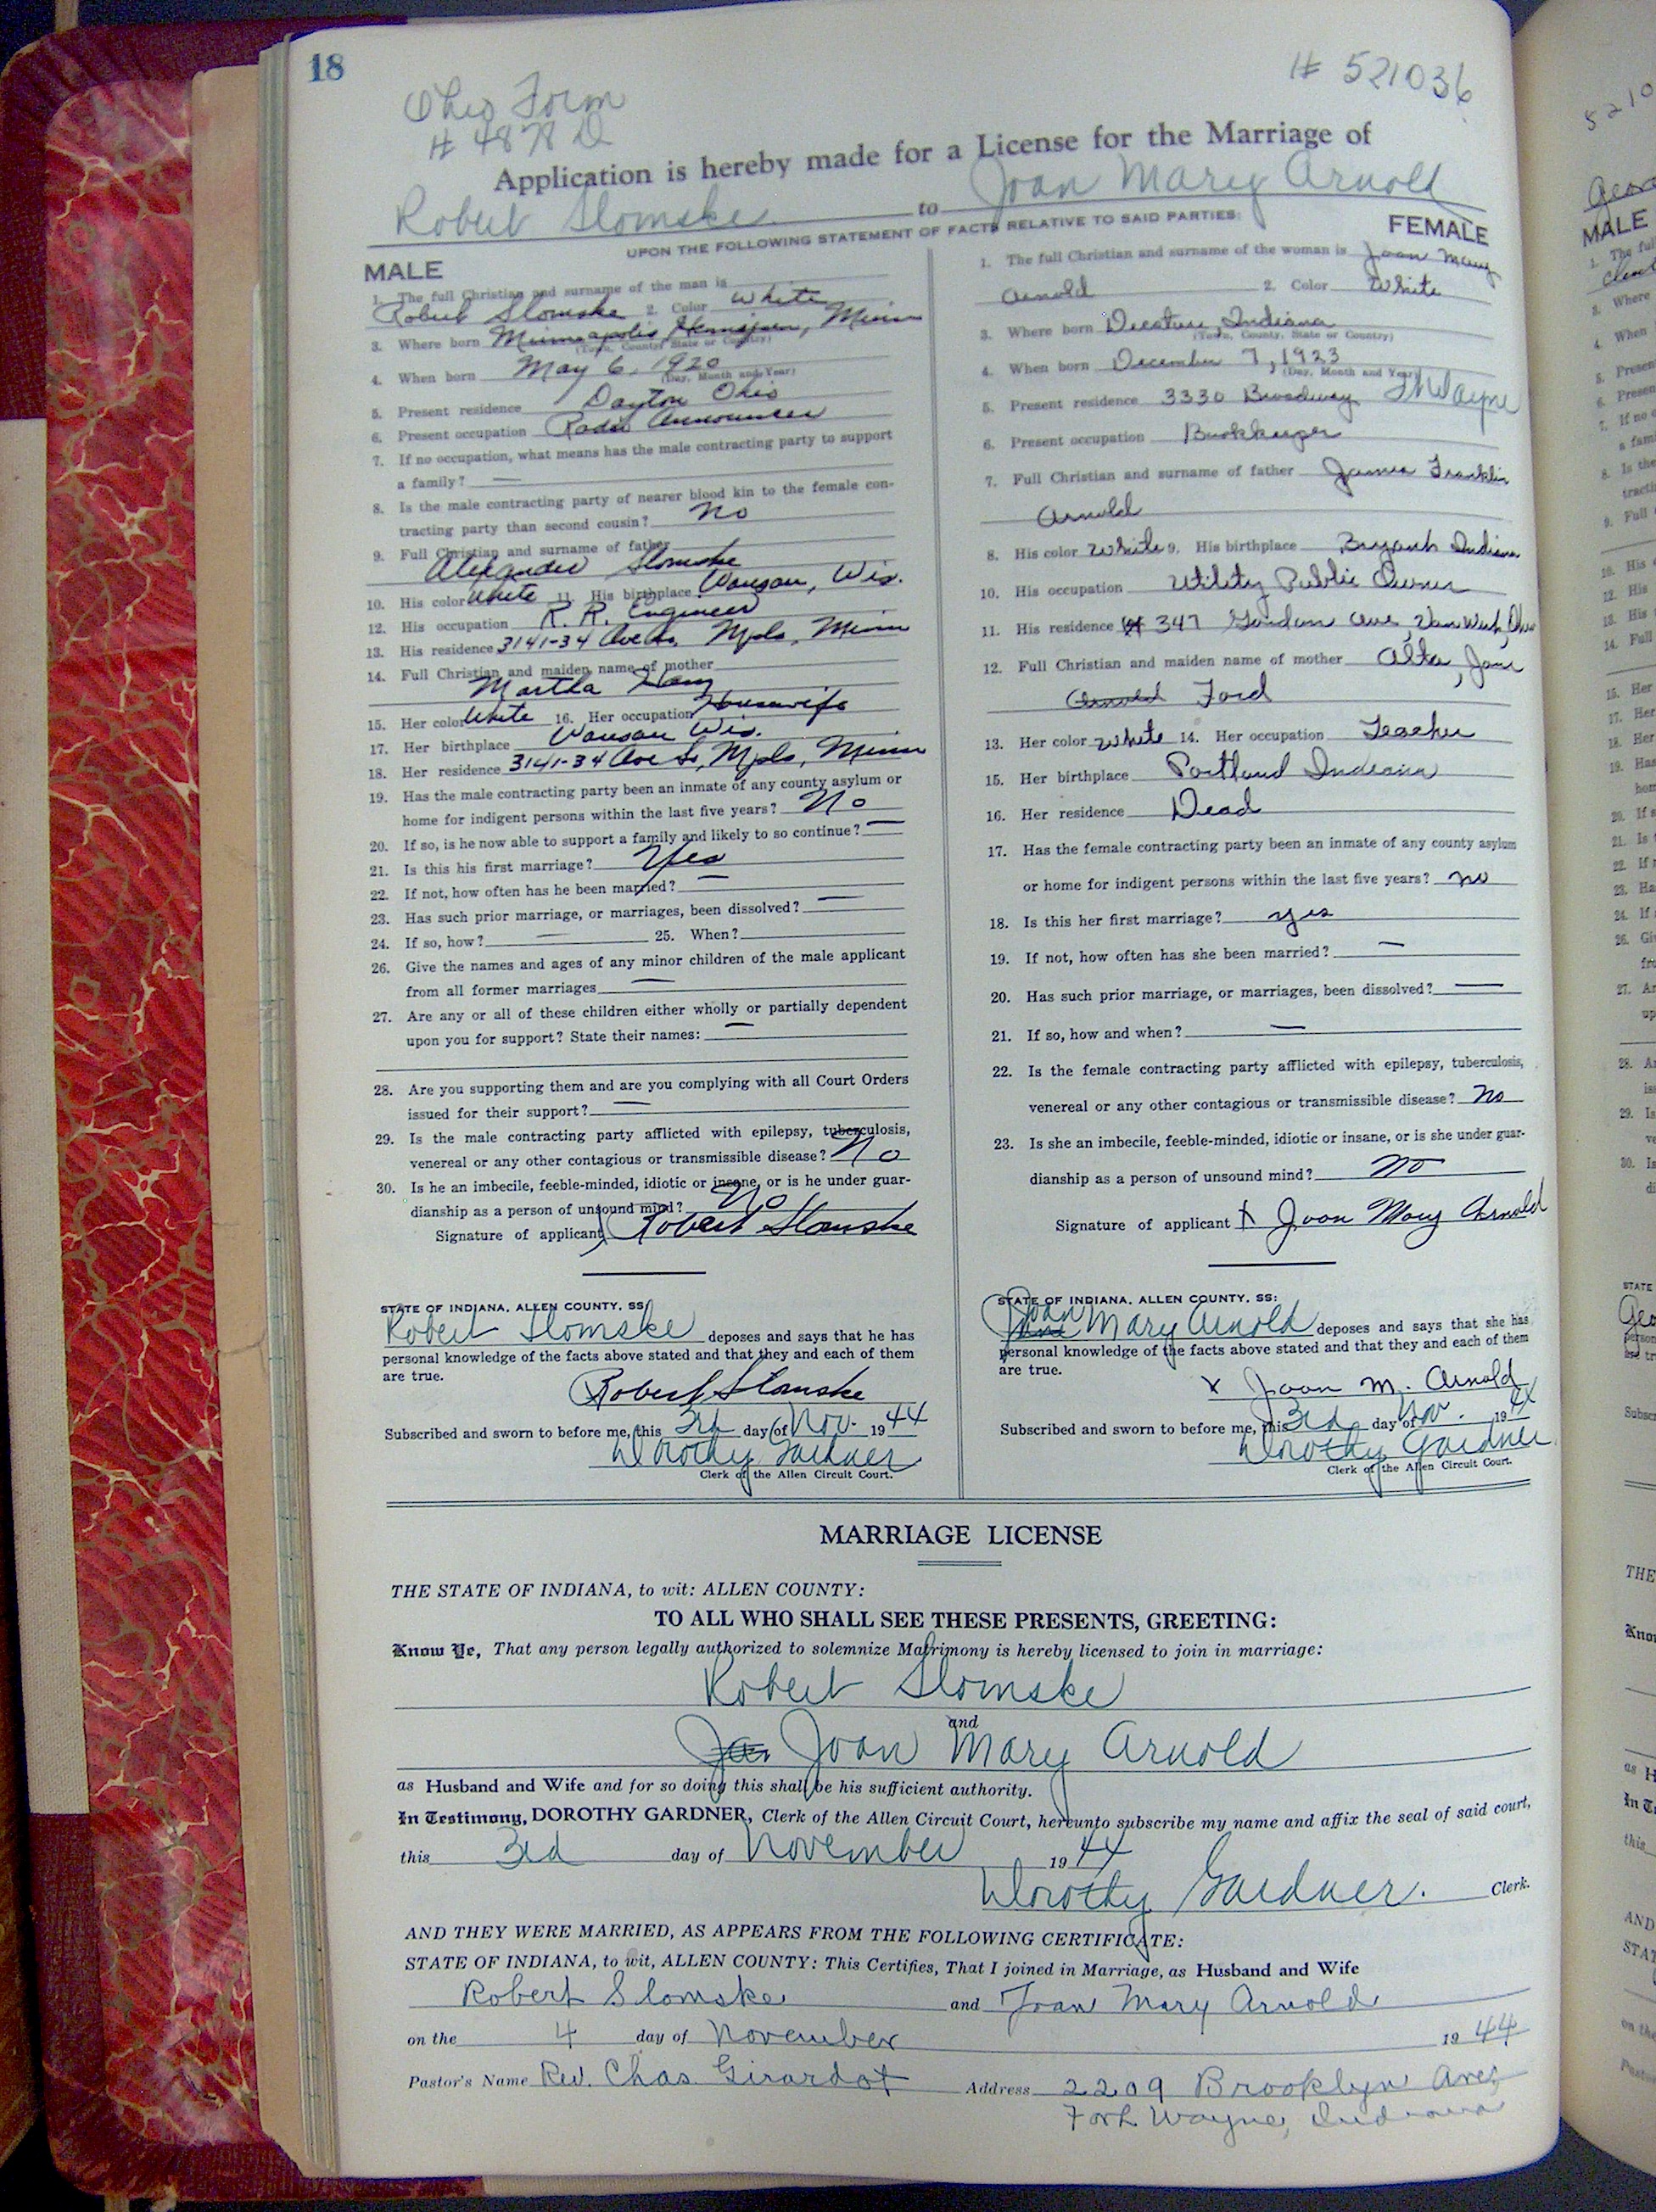 18
# 521036
Ohio Form
# 4878 D
Application is hereby made for a License for the Marriage of
Robert Slomske to Joan Mary Arnold
UPON THE FOLLOWING STATEMENT OF FACTS RELATIVE TO SAID PARTIES:
MALE
1. The full Christian and surname of the man is
Robert Slomske 2. Color White
3. Where born Minneapolis, Minn
(Town, County, State or Country)
4. When born May 6, 1920
(Day, Month and Year)
5. Present residence Dayton Ohio
6. Present occupation Radio Announcer
7. If no occupation, what means has the male contracting party to support
a family? —
8. Is the male contracting party of nearer blood kin to the female con-
tracting party than second cousin? No
9. Full Christian and surname of father
Alexander Slomske
10. His color White 11. His birthplace Wausau, Wis.
12. His occupation R. R. Engineer
13. His residence 3141-34 Ave So, Mpls, Minn
14. Full Christian and maiden name of mother
Martha
15. Her color White 16. Her occupation Housewife
17. Her birthplace Wausau Wis.
18. Her residence 3141-34 Ave So, Mpls, Minn
19. Has the male contracting party been an inmate of any county asylum or
home for indigent persons within the last five years? No
20. If so, is he now able to support a family and likely to so continue? —
21. Is this his first marriage? Yes
22. If not, how often has he been married? —
23. Has such prior marriage, or marriages, been dissolved? —
24. If so, how? — 25. When?
26. Give the names and ages of any minor children of the male applicant
from all former marriages —
27. Are any or all of these children either wholly or partially dependent
upon you for support? State their names: —
28. Are you supporting them and are you complying with all Court Orders
issued for their support? —
29. Is the male contracting party afflicted with epilepsy, tuberculosis,
venereal or any other contagious or transmissible disease? No
30. Is he an imbecile, feeble-minded, idiotic or insane, or is he under guar-
dianship as a person of unsound mind? No
Signature of applicant Robert Slomske
STATE OF INDIANA, ALLEN COUNTY, SS:
Robert Slomske deposes and says that he has
personal knowledge of the facts above stated and that they and each of them
are true.
Robert Slomske
Subscribed and sworn to before me, this 3rd day of Nov. 1944
Dorothy Gardner
Clerk of the Allen Circuit Court.
FEMALE
1. The full Christian and surname of the woman is Joan Mary
Arnold 2. Color White
3. Where born Decatur, Indiana
(Town, County, State or Country)
4. When born December 7, 1923
(Day, Month and Year)
5. Present residence 3330 Broadway Ft Wayne
6. Present occupation Bookkeeper
7. Full Christian and surname of father James Franklin
Arnold
8. His color White 9. His birthplace Bryant Indiana
10. His occupation Utility Public Owner
11. His residence 347 Gordon Ave, Van Wert, Ohio
12. Full Christian and maiden name of mother Alta, Jane
Arnold Ford
13. Her color White 14. Her occupation Teacher
15. Her birthplace Portland Indiana
16. Her residence Dead
17. Has the female contracting party been an inmate of any county asylum
or home for indigent persons within the last five years? no
18. Is this her first marriage? yes
19. If not, how often has she been married? —
20. Has such prior marriage, or marriages, been dissolved? —
21. If so, how and when? —
22. Is the female contracting party afflicted with epilepsy, tuberculosis,
venereal or any other contagious or transmissible disease? No
23. Is she an imbecile, feeble-minded, idiotic or insane, or is she under guar-
dianship as a person of unsound mind? no
Signature of applicant x Joan Mary Arnold
STATE OF INDIANA, ALLEN COUNTY, SS:
Joan Mary Arnold deposes and says that she has
personal knowledge of the facts above stated and that they and each of them
are true.
x Joan M. Arnold
Subscribed and sworn to before me, this 3rd day of Nov. 1944
Dorothy Gardner
Clerk of the Allen Circuit Court.
MARRIAGE LICENSE
THE STATE OF INDIANA, to wit: ALLEN COUNTY:
TO ALL WHO SHALL SEE THESE PRESENTS, GREETING:
Know Ye, That any person legally authorized to solemnize Matrimony is hereby licensed to join in marriage:
Robert Slomske
and
Joan Mary Arnold
as Husband and Wife and for so doing this shall be his sufficient authority.
In Testimony, DOROTHY GARDNER, Clerk of the Allen Circuit Court, hereunto subscribe my name and affix the seal of said court,
this 3rd day of November 1944
Dorothy Gardner. Clerk.
AND THEY WERE MARRIED, AS APPEARS FROM THE FOLLOWING CERTIFICATE:
STATE OF INDIANA, to wit, ALLEN COUNTY: This Certifies, That I joined in Marriage, as Husband and Wife
Robert Slomske and Joan Mary Arnold
on the 4 day of November 1944
Pastor's Name Rev. Chas. Girardot Address 2209 Brooklyn Ave,
Fort Wayne, Indiana